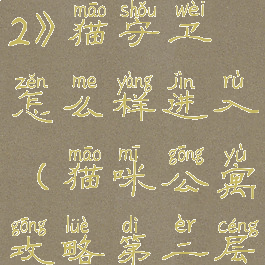 māo shǒu wèi
2》猫守卫
zěn me yàng jìn rù
怎么样进入
māo mī gōng yù
（猫咪公寓1
gōng lüè dì èr céng
攻略第二层